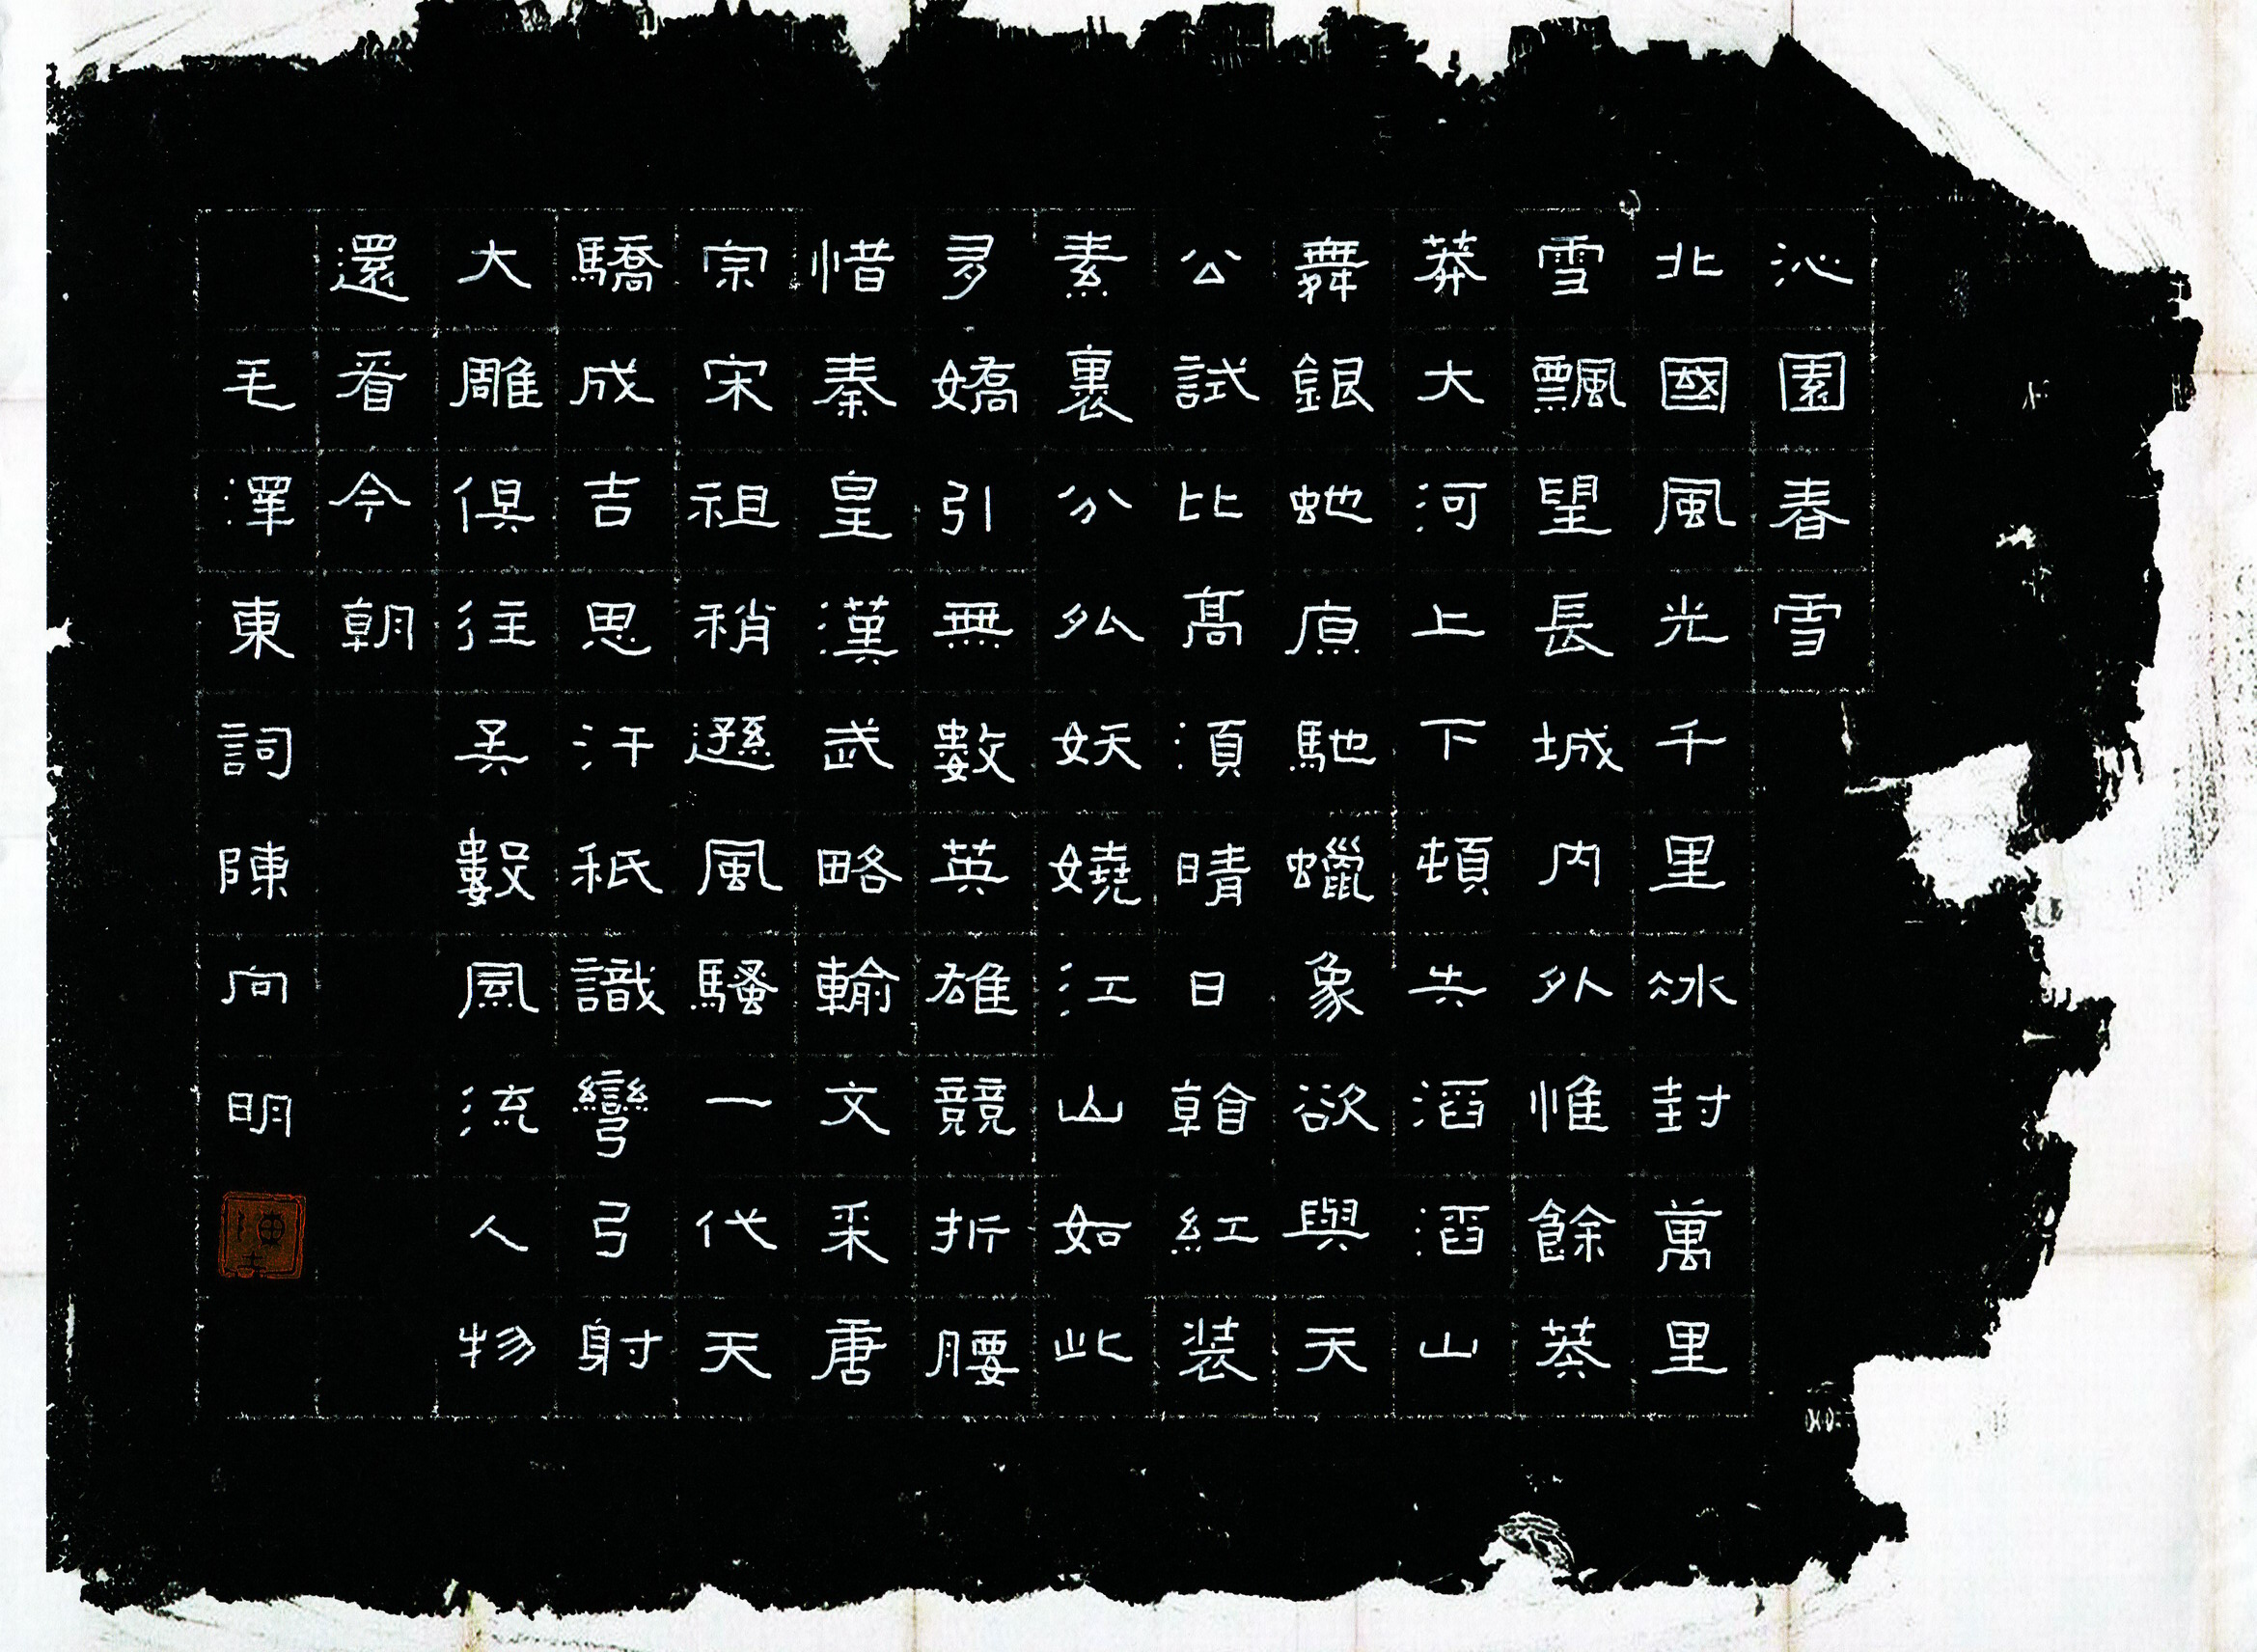 沁園春雪
北國風光千里冰封萬里
雪飄望長城内外惟餘莽
莽大河上下頓失滔滔山
舞銀虵原馳蠟象欲與天
公試比髙須晴日看紅装
素裏分外妖嬈江山如此
多嬌引無數英雄競折腰
惜秦皇漢武略輸文采唐
宗宋祖稍遜風騷一代天
驕成吉思汗祇識彎弓射
大雕俱往矣數風流人物
還看今朝
毛澤東詞陳向明